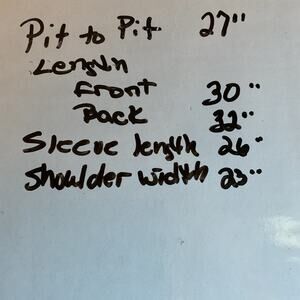 Pit to Pit 27"
Length
Front 30"
Back 32"
Sleeve length 26"
Shoulder width 23"